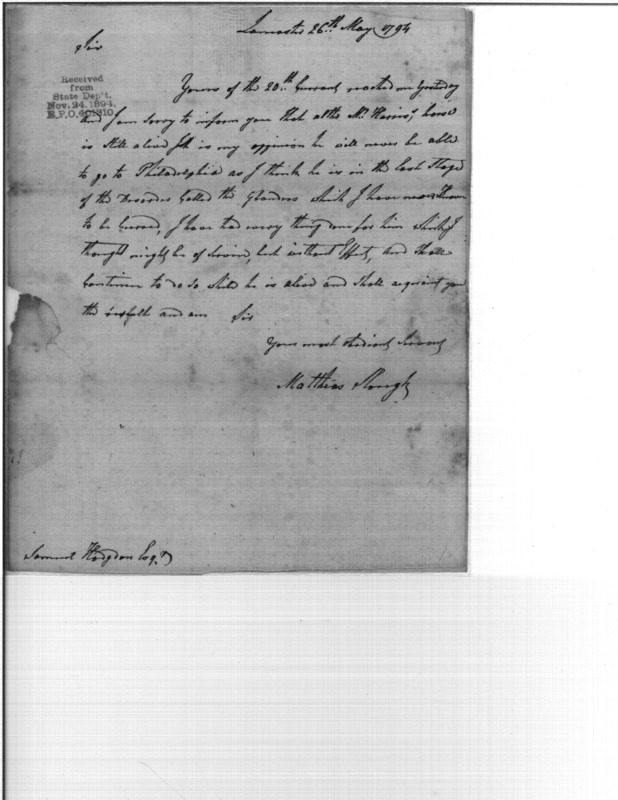 Lancaster 26th May 1794
Sir
Received
from
State Dep't.
Nov. 24. 1894.
R.P.O. 401310
Yours of the 20th Currant reached me Yesterday
and I am sorry to inform you that altho Mr. Harris's horse
is still alive it is my oppinion he will never be able
to go to Philadelphia as I think he is in the last Stage
of the Disorder Called the Glanders which I have never known
to be Currad, I have had every thing done for him which I
thought might be of Service, but without Effect, and shall
Continue to do so while he is alive and shall acquaint you
the and am Sir
Your most obedient Servant
Matthias Slough
Samuel Hodgdon Esqr.